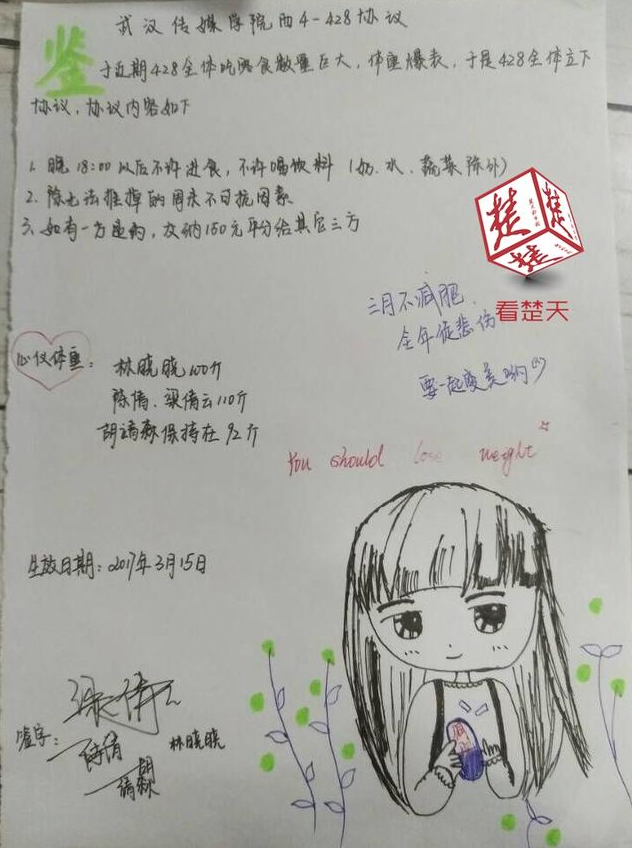 武汉传媒学院西4-428协议
鉴
于近期428全体吃零食数量巨大，体重爆表，于是428全体立下
协议，协议内容如下
1. 晚18:00以后不许进食，不许喝饮料（奶、水、蔬菜除外）
2. 除无法推掉的周末不可抗因素
3. 如有一方违约，交纳150元平分给其它三方
楚
楚
楚
看楚天
三月不减肥、
全年徒悲伤
要一起变美哟
心仪体重：
林晓晓100斤
陈倩、梁倩云110斤
胡靖淼保持在92斤
You should lose weight
生效日期：2017年3月15日
签字：
梁倩云
陈倩
林晓晓
胡靖淼